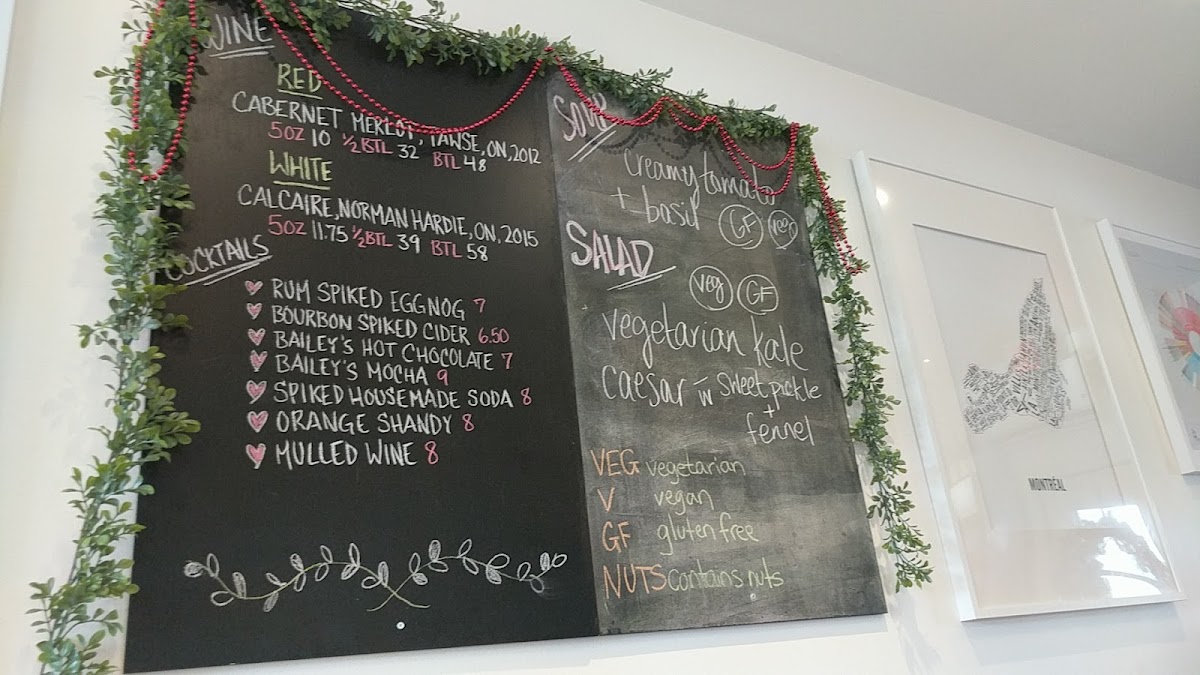 WINE
RED
CABERNET MERLOT, TAWSE, ON, 2012
5OZ 10 ½BTL 32 BTL 48
WHITE
CALCAIRE, NORMAN HARDIE, ON, 2015
5OZ 11.75 ½BTL 39 BTL 58
COCKTAILS
RUM SPIKED EGGNOG 7
BOURBON SPIKED CIDER 6.50
BAILEY'S HOT CHOCOLATE 7
BAILEY'S MOCHA 9
SPIKED HOUSEMADE SODA 8
ORANGE SHANDY 8
MULLED WINE 8
SOUP
creamy tomato
+ basil GF veg
SALAD
veg GF
vegetarian kale
caesar w sweet pickle
+
fennel
VEG vegetarian
V vegan
GF gluten free
NUTS contains nuts
MONTRÉAL